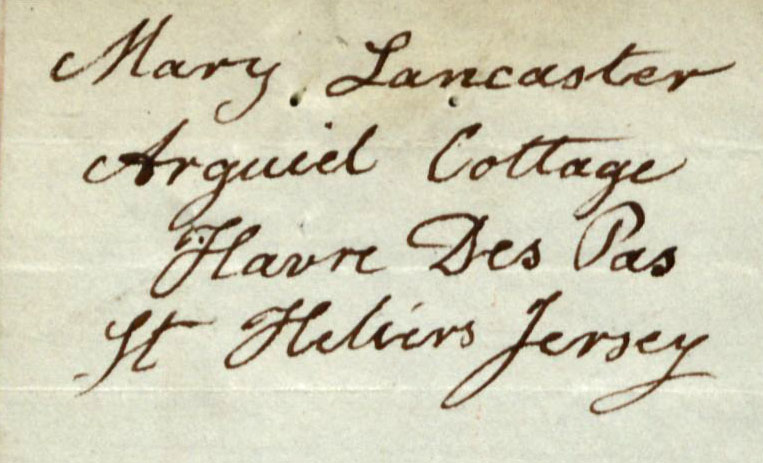 Mary Lancaster
Arguiel Cottage
Havre Des Pas
St Heliers Jersey